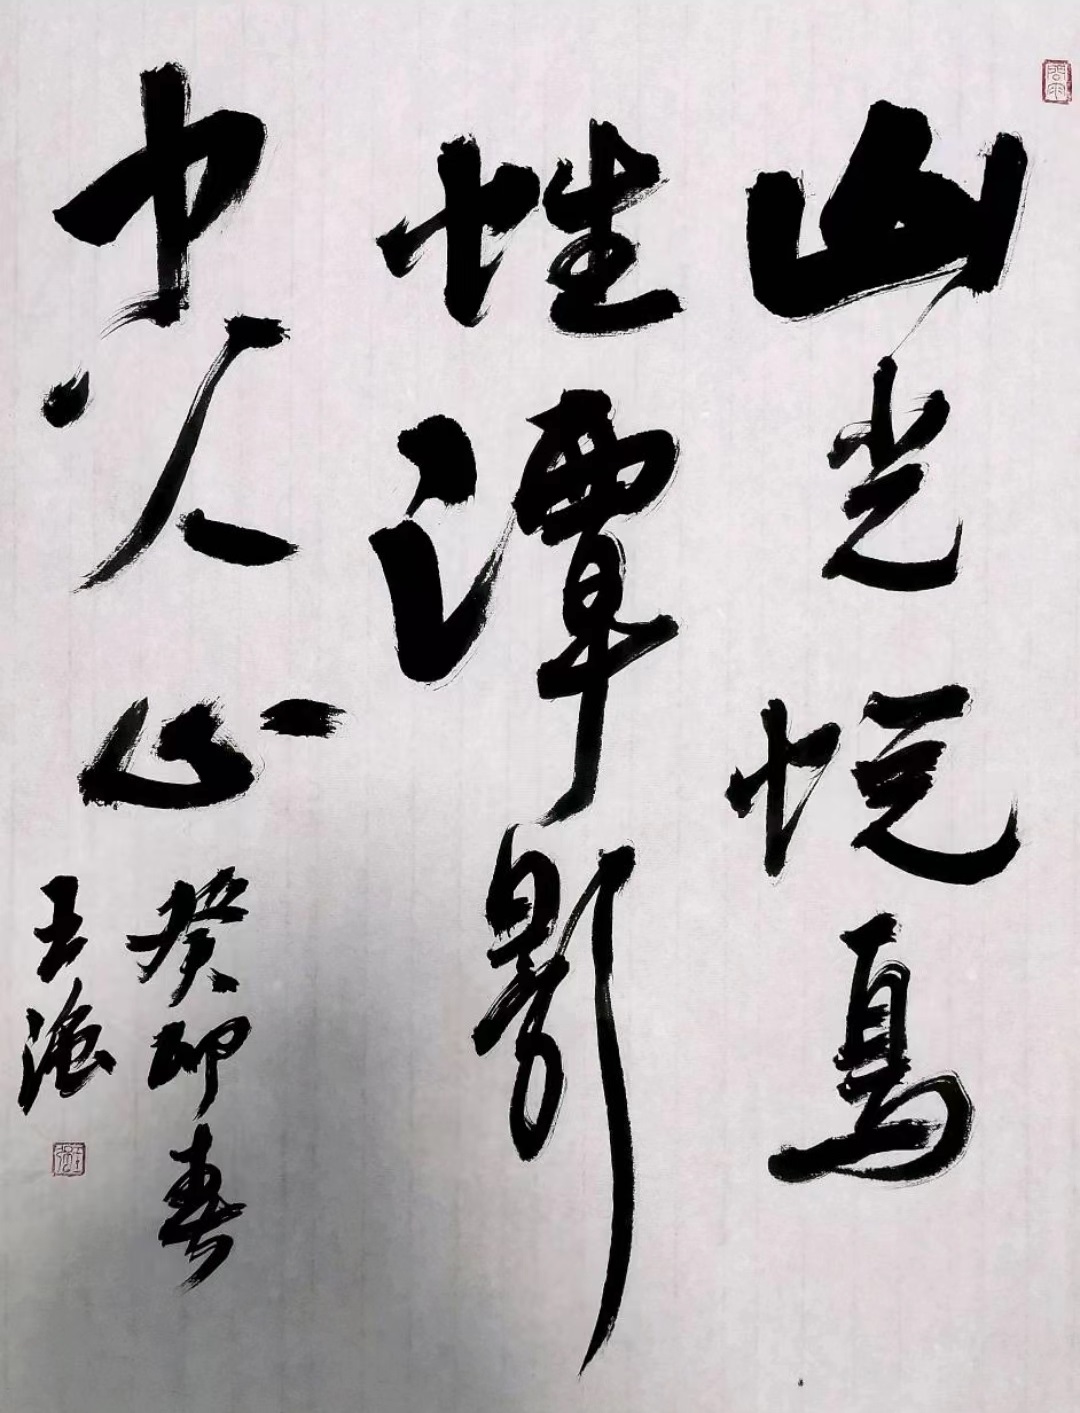 山光悦鸟
性潭影
人心
癸卯春
王强